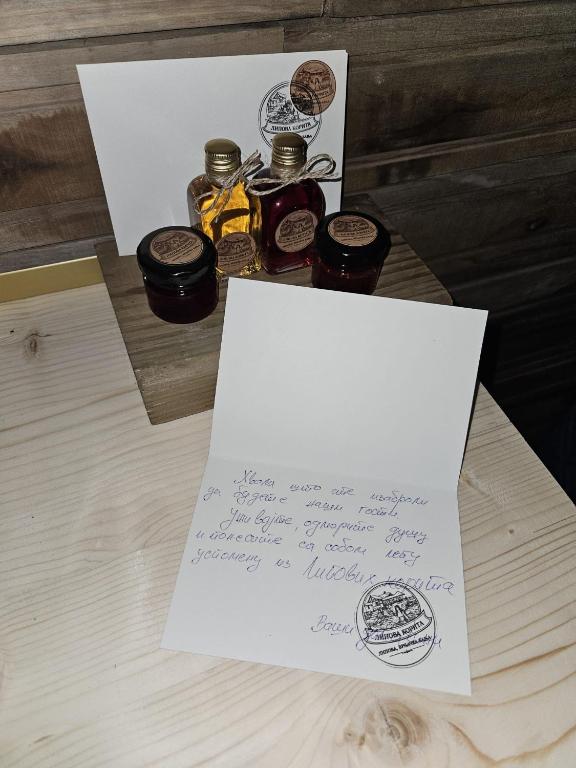 ЛИПОВА КОРИТА
Хвала што сте изабрали
да будете наши гости.
Уживајте, одморите душу
и понесите са собом лепу
успомену из Липових корита
Ваши
ЛИПОВА КОРИТА